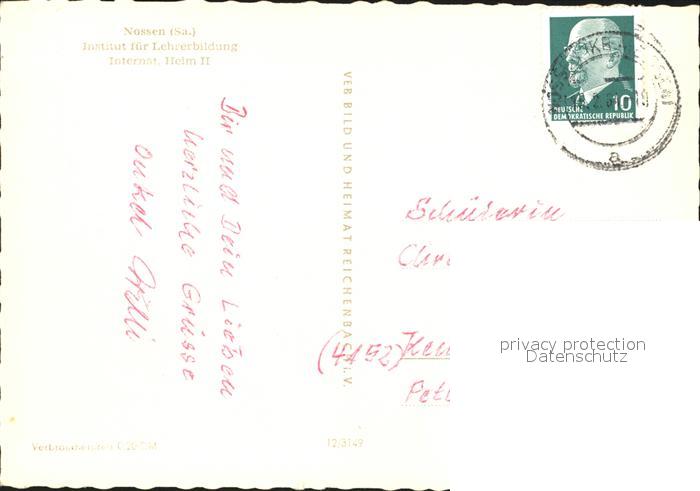 Nossen (Sa.)
Institut für Lehrerbildung
Internat, Heim II
Dir und Dein Lieben
herzliche Grüsse
Onkel Willi
VEB BILD UND HEIMAT REICHENBACH i. V.
10
DEUTSCHE
DEMOKRATISCHE REPUBLIK
a
Schülerin
(4452)
privacy protection
Datenschutz
Verbraucherpreis 0,20 DM
12/3149